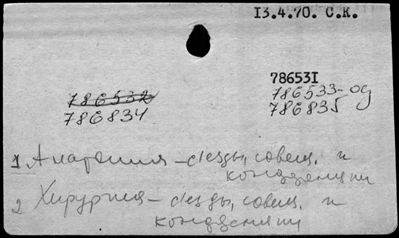 13.4.70. С.К.
786531
786532 786533-од
786834 786835
1 Анатомия - съезды, совещ. и
конференции
2 Хирургия - съезды, совещ. и
конференции